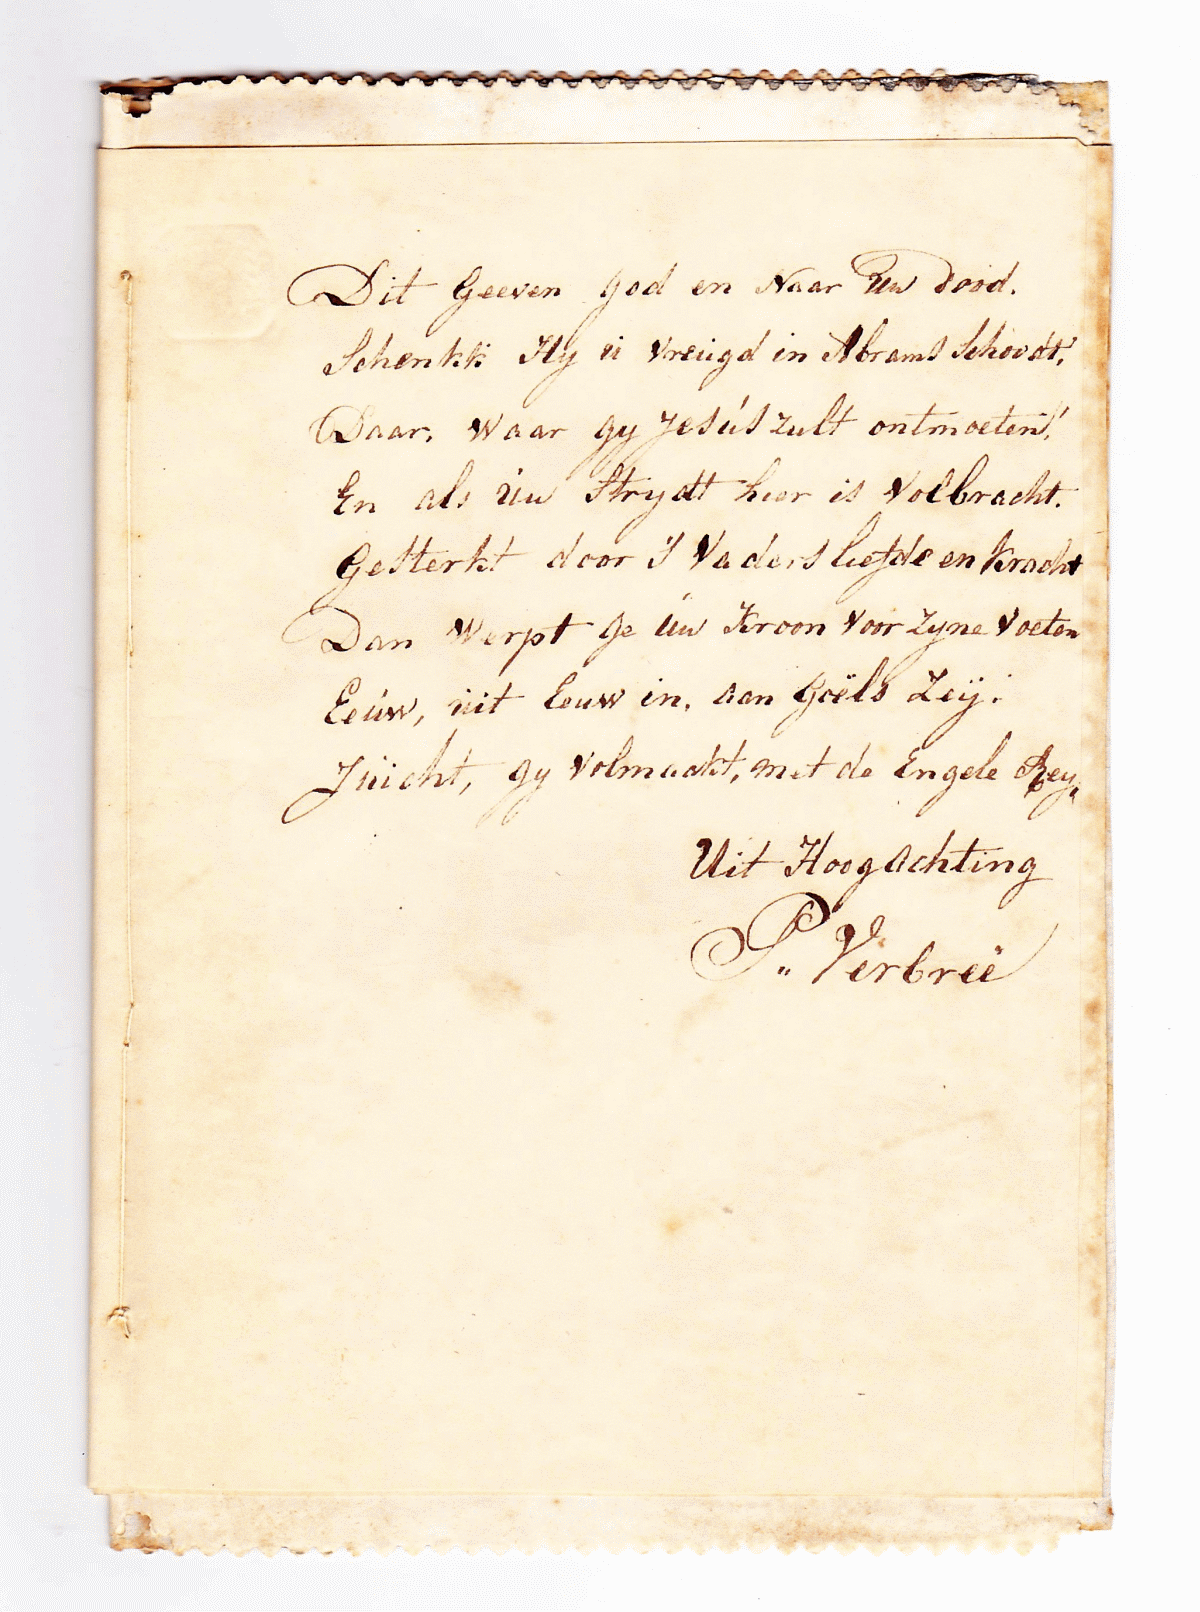 Dit Geeven god en Naar Uw dood.
Schenkk Hy ú vreúgd in Abrams Schoodt,
Daar, waar gy Jesús zult ontmoeten!
En als úw Strydt hier is volbracht.
Gesterkt door 's Vaders liefde en kracht
Dan werpt ge úw Kroon voor zyne voeten
Eeúw, úit Eeuw in, aan Goëls Zeÿ:
Júicht, gy volmaakt, met de Engele Rey,
Uit HoogAchting
P„ Verbreë